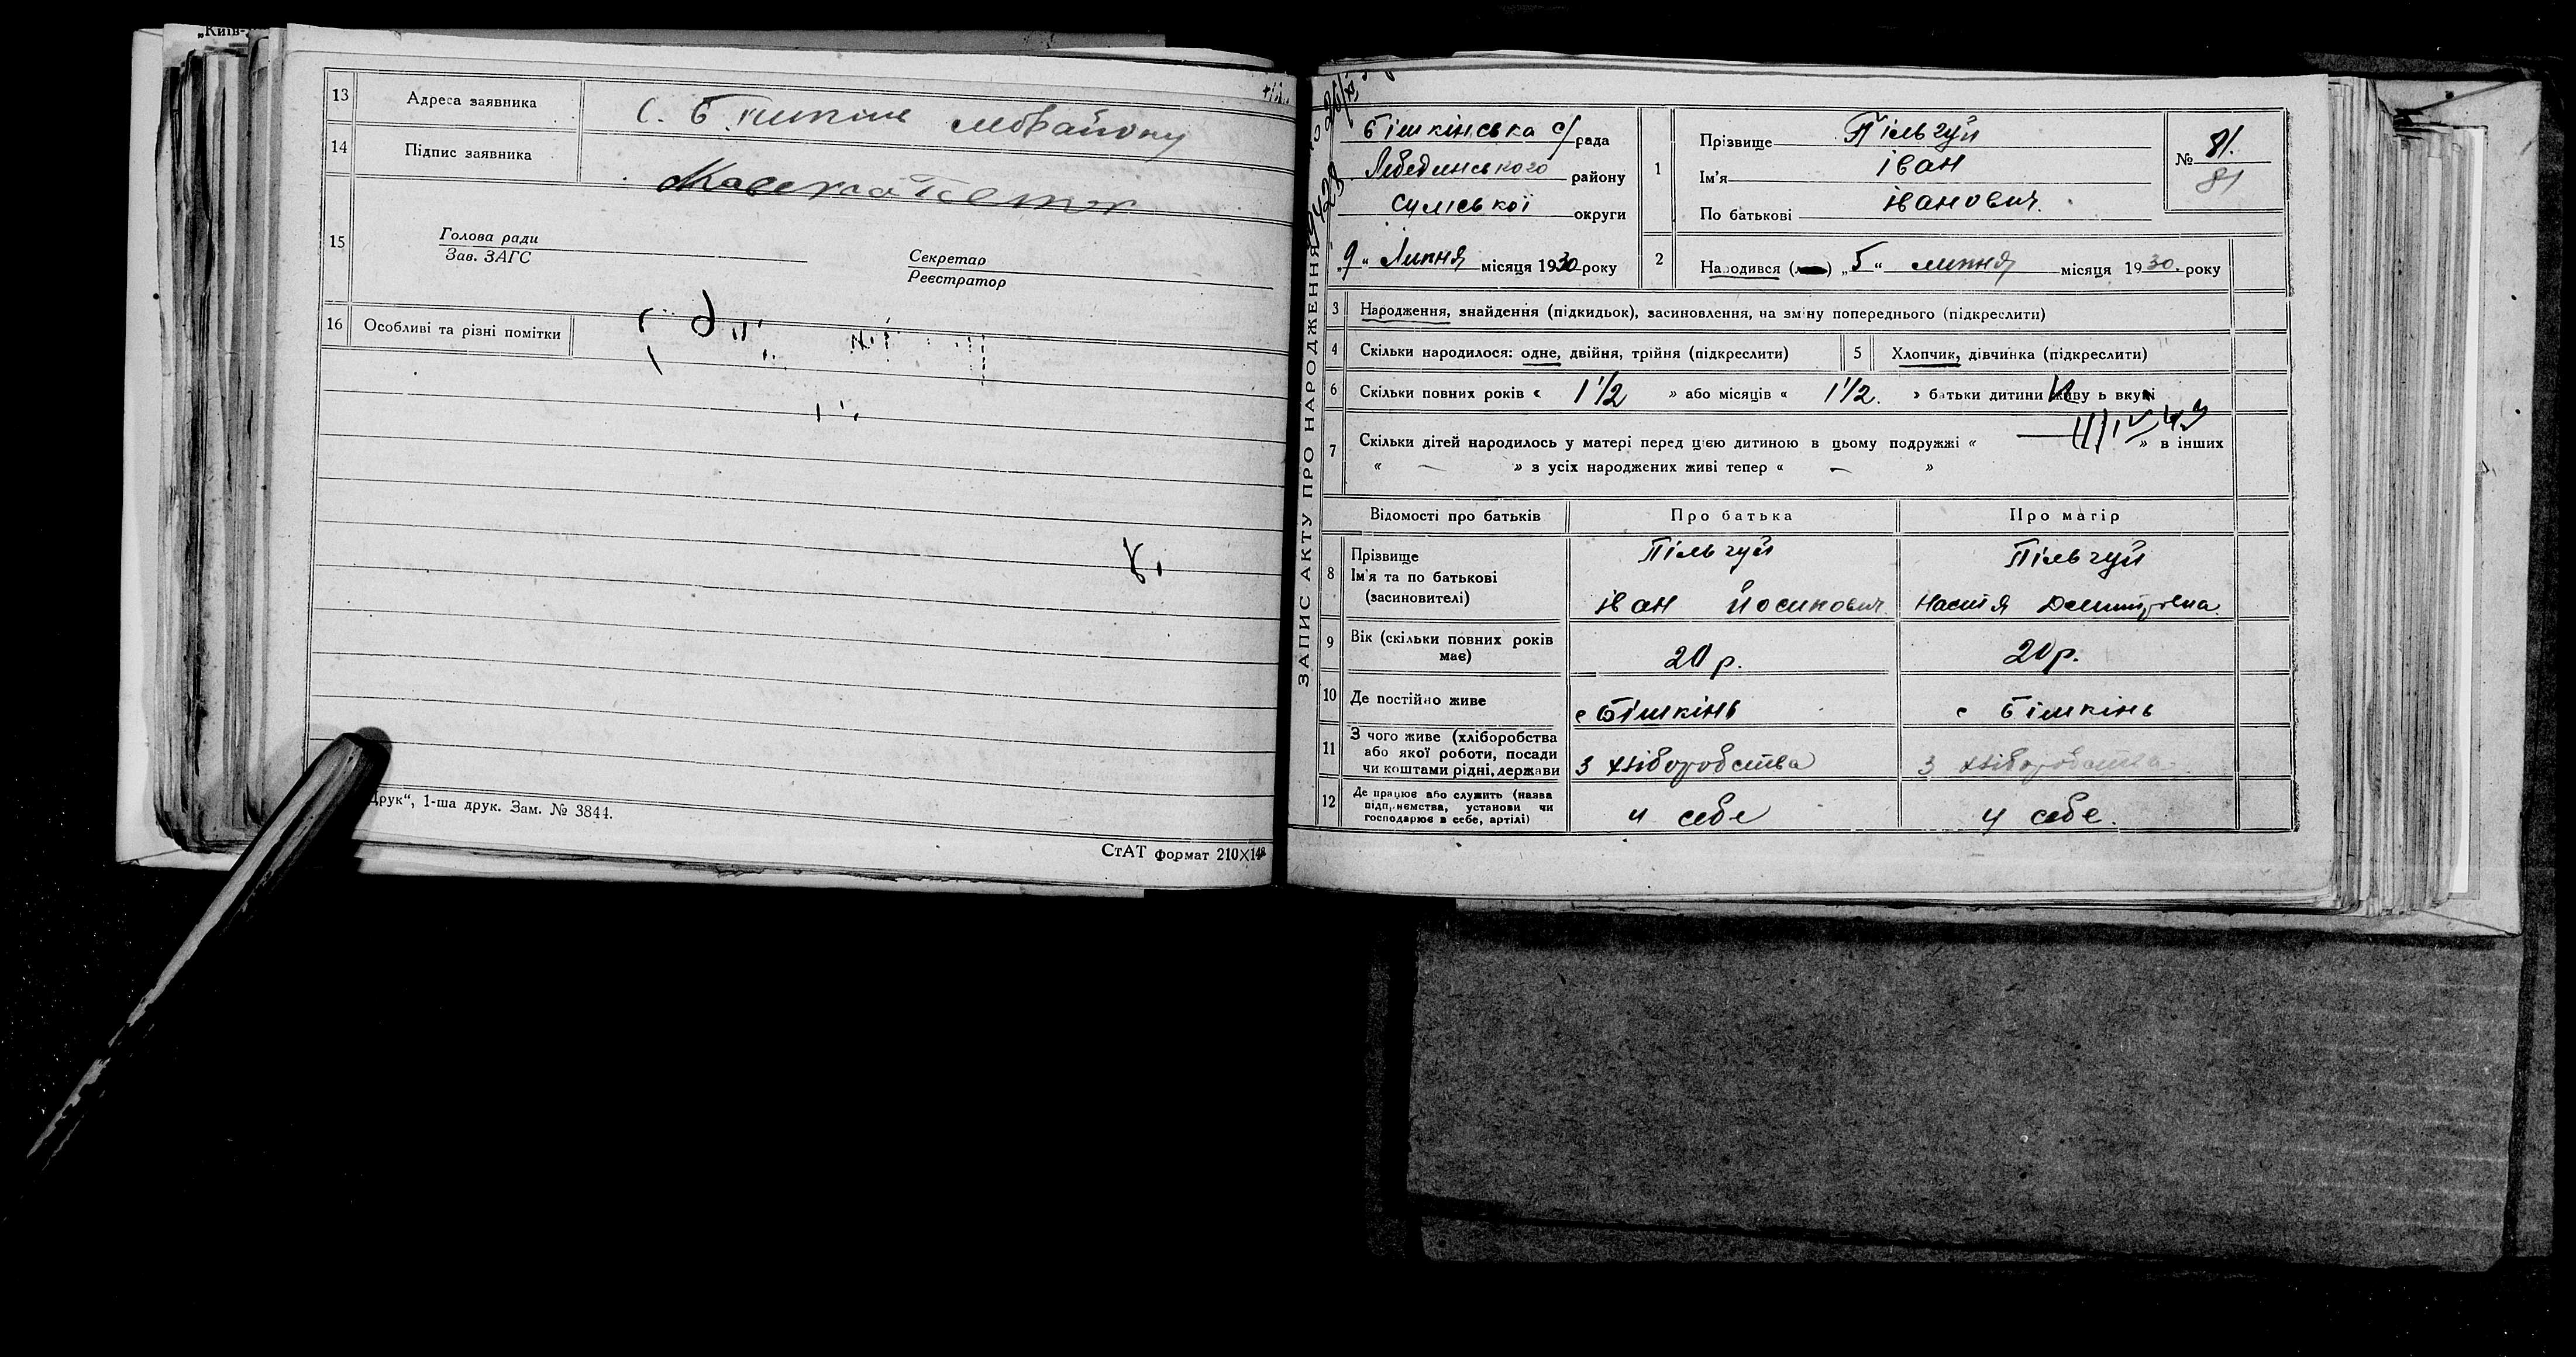 „Київ-
13 Адреса заявника С. Бишкінь
14 Підпис заявника
15 Голова ради
Зав. ЗАГС
Секретар
Реєстратор
16 Особливі та різні помітки
Друк“, 1-ша друк. Зам. № 3844.
СтАТ формат 210×148
ЗАПИС АКТУ ПРО НАРОДЖЕННЯ
Бішкінська с/рада
Лебединського району
Сумської округи
„9“ Липня місяця 1930 року
1 Прізвище Пільгуй
Ім'я Іван
По батькові Іванович.
№ 81.
81
2 Народився „5“ липня місяця 1930. року
3 Народження, знайдення (підкидьок), засиновлення, на зміну попереднього (підкреслити)
4 Скільки народилося: одне, двійня, трійня (підкреслити)
5 Хлопчик, дівчинка (підкреслити)
6 Скільки повних років « 1 1/2 » або місяців « 1 1/2. » батьки дитини живу ь вкупі
7 Скільки дітей народилось у матері перед цією дитиною в цьому подружжі « — » в інших
« — » з усіх народжених живі тепер « — »
Відомості про батьків Про батька Про матір
8 Прізвище Пільгуй Пільгуй
Ім'я та по батькові
(засиновителі) Іван Йосипович Настя
9 Вік (скільки повних років
має) 20 р. 20 р.
10 Де постійно живе с Бішкінь с Бішкінь
11 З чого живе (хліборобства
або якої роботи, посади
чи коштами рідні, держави З хліборобства З хліборобства
12 Де працює або служить (назва
підприємства, установи чи
господарює в себе, артілі) у себе у себе.